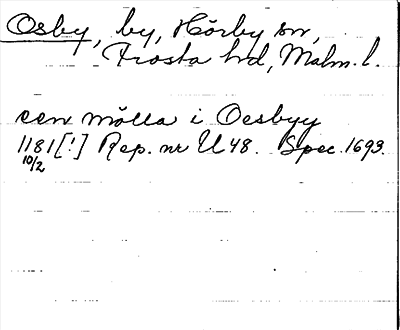 Osby, by, Hörby sn,
Frosta hd, Malm. l.
een mölla i Oesbyy
1181[!] Rep. nr U 48. Spec. 1693.
10/2